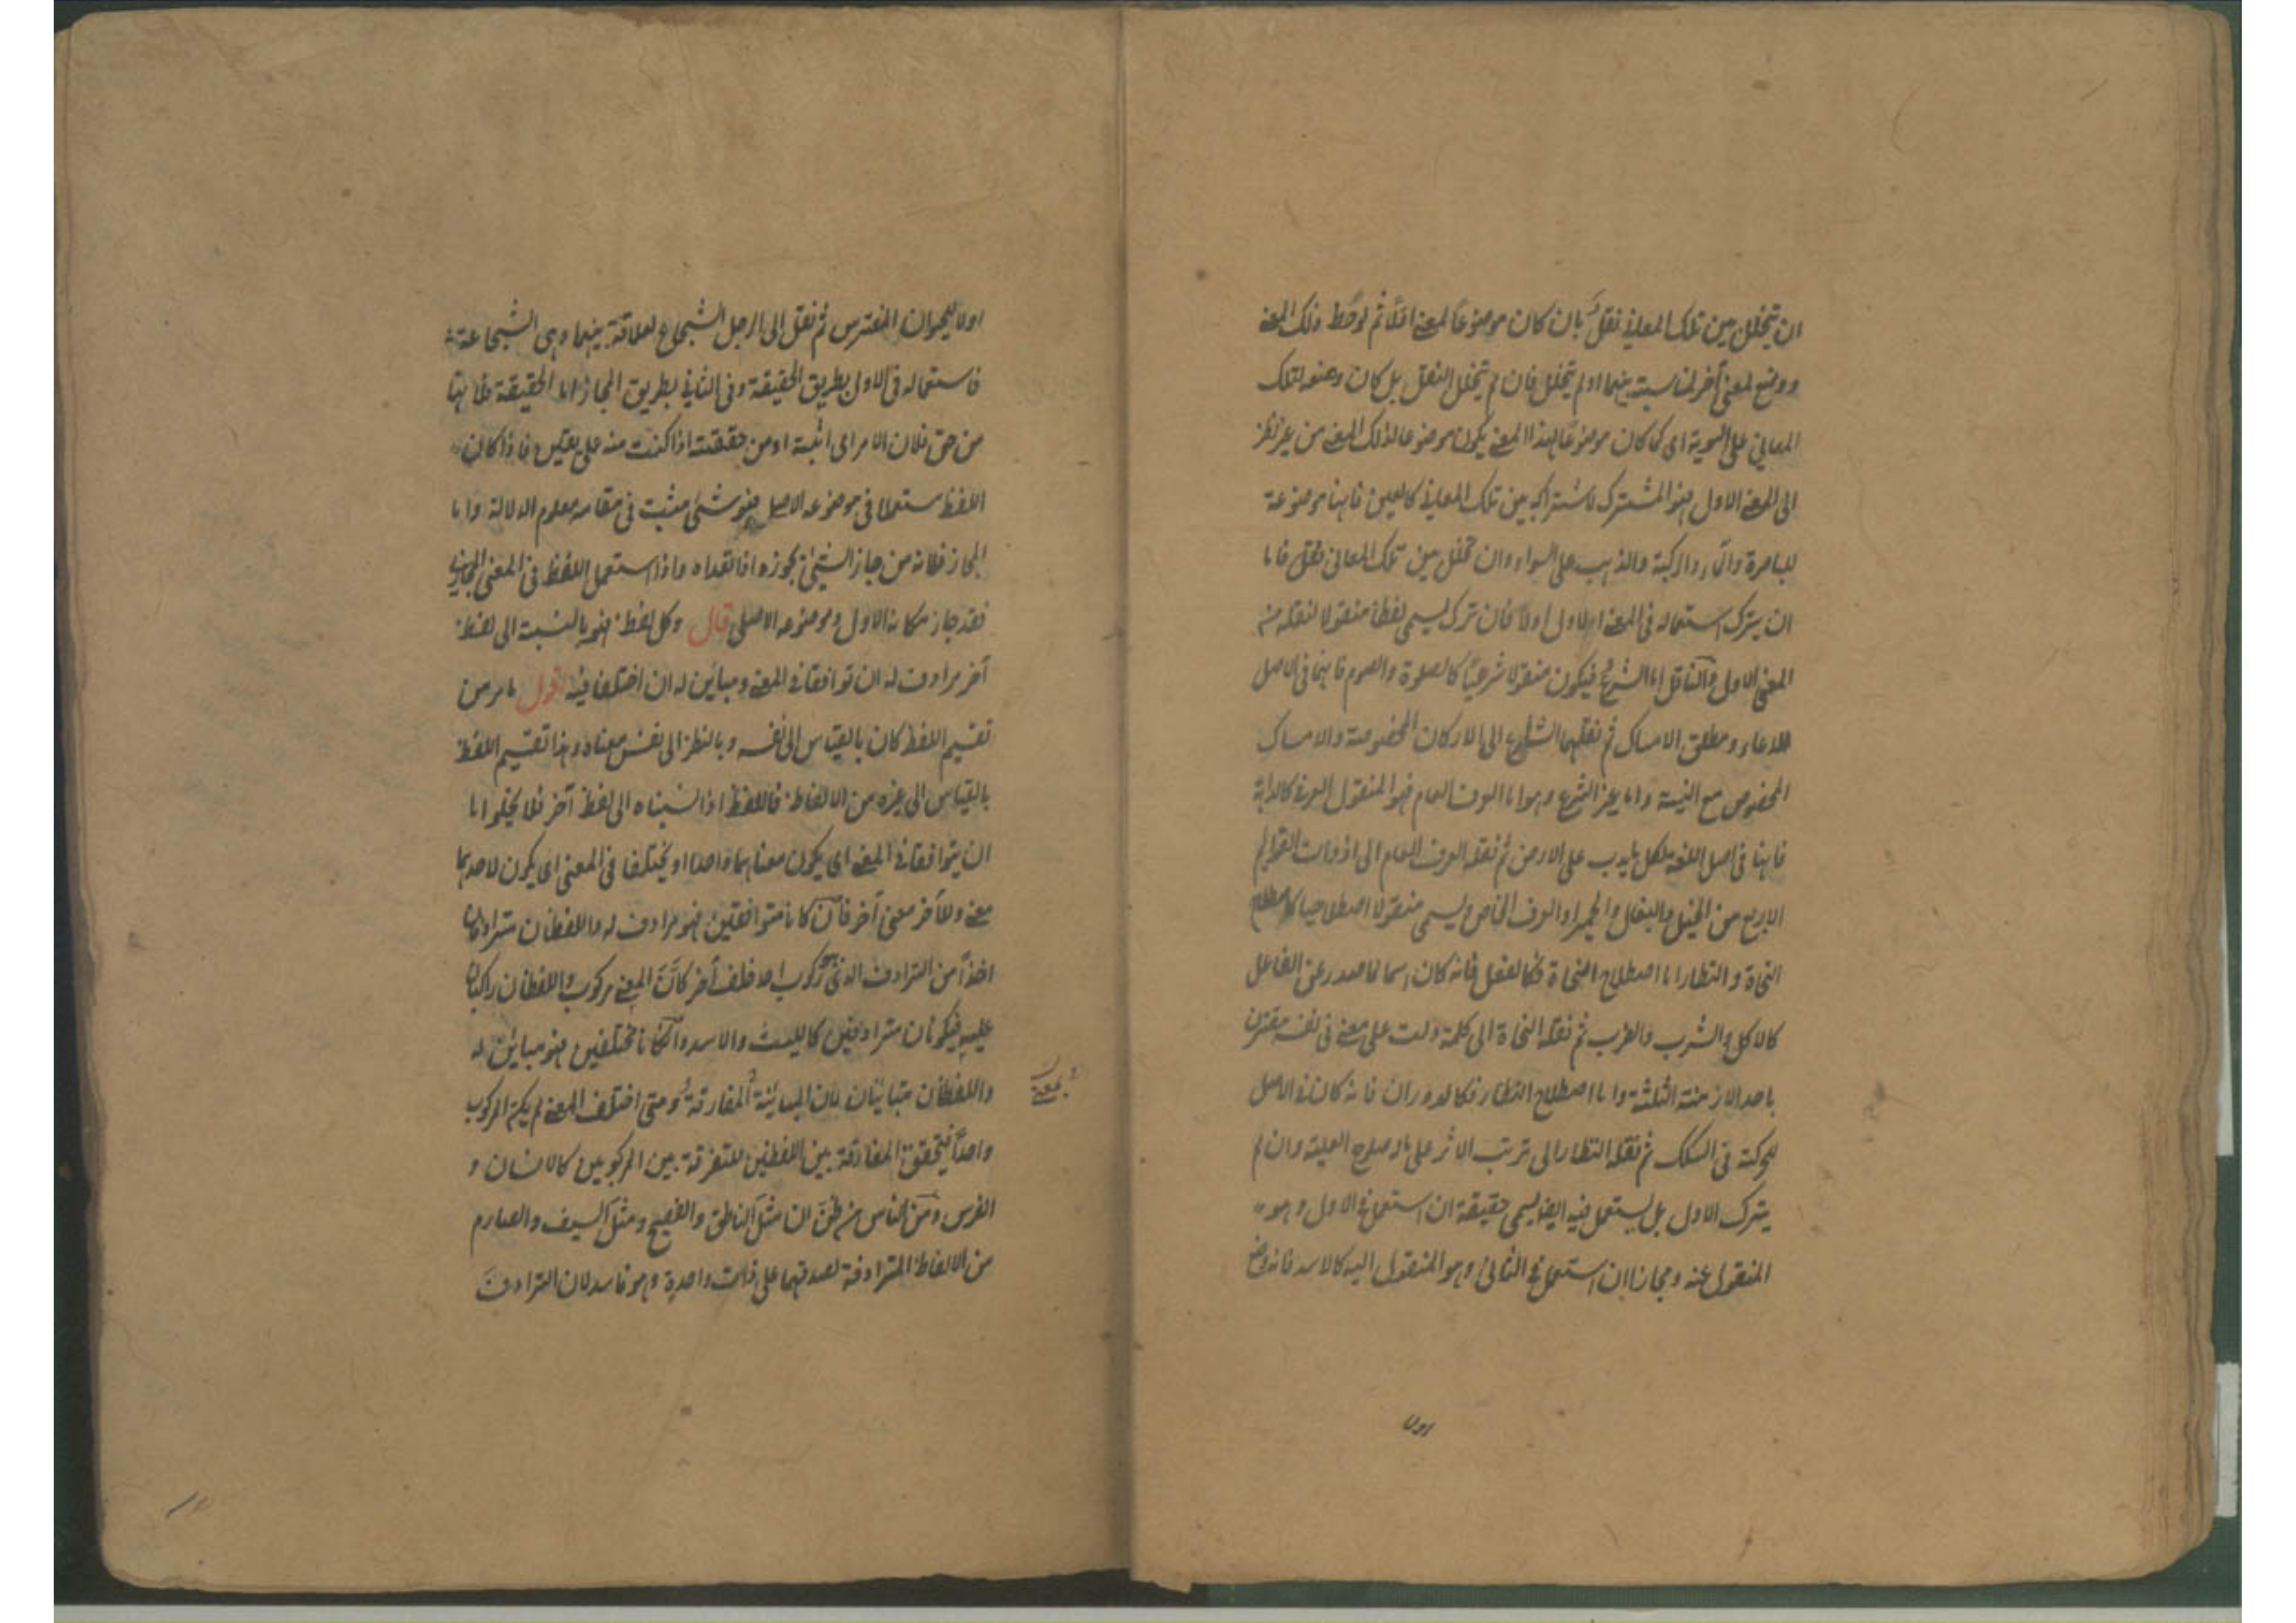 ان يتخلل بين تلك المعاني نقل بان كان موضوعا لمعنى اولا ثم لوحظ ذلك المعنى
ووضع لمعنى آخر لمناسبة بينهما او لم يتخلل فان لم يتخلل النقل بل كان وضعه لتلك
المعاني على السوية اى كما كان موضوعا لهذا المعنى يكون موضوعا لذلك المعنى من غير نظر
الى المعنى الاول فهو المشترك لاشتراكه بين تلك المعاني كالعين فانها موضوعة
للباصرة والماء والركبة والذهب على السواء وان تخلل بين تلك المعاني نقل فاما
ان يترك استعماله في المعنى الاول اولا فان ترك يسمى لفظا منقولا لنقله من
المعنى الاول والناقل اما الشرع فيكون منقولا شرعيا كالصلوة والصوم فانهما في الاصل
للدعاء ومطلق الامساك ثم نقلهما الشارع الى الاركان المخصوصة والامساك
المخصوص مع النية واما غير الشرع وهو اما العرف العام فهو المنقول العرفي كالدابة
فانها في اصل اللغة لكل ما يدب على الارض ثم نقله العرف العام الى ذوات القوائم
الاربع من الخيل والبغال والحمير او العرف الخاص ويسمى منقولا اصطلاحيا كاصطلاح
النحاة والنظار اما اصطلاح النحاة فكالفعل فانه كان اسما لما صدر عن الفاعل
كالاكل والشرب والضرب ثم نقله النحاة الى كلمة دلت على معنى في نفسه مقترن
باحد الازمنة الثلثة واما اصطلاح النظار فكالدوران فانه كان في الاصل
للحركة في السكك ثم نقله النظار الى ترتب الاثر على ما له صلوح العلية وان لم
يترك الاول بل يستعمل فيه ايضا يسمى حقيقة ان استعمل في الاول وهو
المنقول عنه ومجازا ان استعمل في الثاني وهو المنقول اليه كالاسد فانه وضع
اولا
اولا للحيوان المفترس ثم نقل الى الرجل الشجاع لعلاقة بينهما وهى الشجاعة
فاستعماله في الاول بطريق الحقيقة وفي الثاني بطريق المجاز اما الحقيقة فلانها
من حق فلان الامر اى اثبته او من حققته اذا كنت منه على يقين فاذا كان
اللفظ مستعملا في موضوعه الاصلي فهو شئ مثبت في مقامه معلوم الدلالة واما
المجاز فلانه من جاز الشئ يجوزه اذا تعداه واذا استعمل اللفظ في المعنى المجازي
فقد جاز مكانه الاول وموضوعه الاصلى قال وكل لفظ فهو بالنسبة الى لفظ
آخر مرادف له ان توافقا في المعنى ومباين له ان اختلفا فيه اقول ما مر من
تقسيم اللفظ كان بالقياس الى نفسه وبالنظر الى نفس معناه وهذا تقسيم اللفظ
بالقياس الى غيره من الالفاظ فاللفظ اذا نسبناه الى لفظ آخر فلا يخلو اما
ان يتوافقا في المعنى اى يكون معناهما واحدا او يختلفا في المعنى اى يكون لاحدهما
معنى وللآخر معنى آخر فان كانا متوافقين فهو مرادف له واللفظان مترادفان
اخذا من الترادف الذى هو ركوب احد خلف آخر كأن المعنى مركوب واللفظان راكبان
عليه فيكونان مترادفين كالليث والاسد وان كانا مختلفين فهو مباين له
واللفظان متباينان لان المباينة المفارقة ومتى اختلف المعنى لم يكن المركوب
واحدا فيتحقق المفارقة بين اللفظين للتفرقة بين المركوبين كالانسان و
الفرس ومن الناس من ظن ان مثل الناطق والفصيح ومثل السيف والصارم
من الالفاظ المترادفة لصدقهما على ذات واحدة وهو فاسد لان الترادف